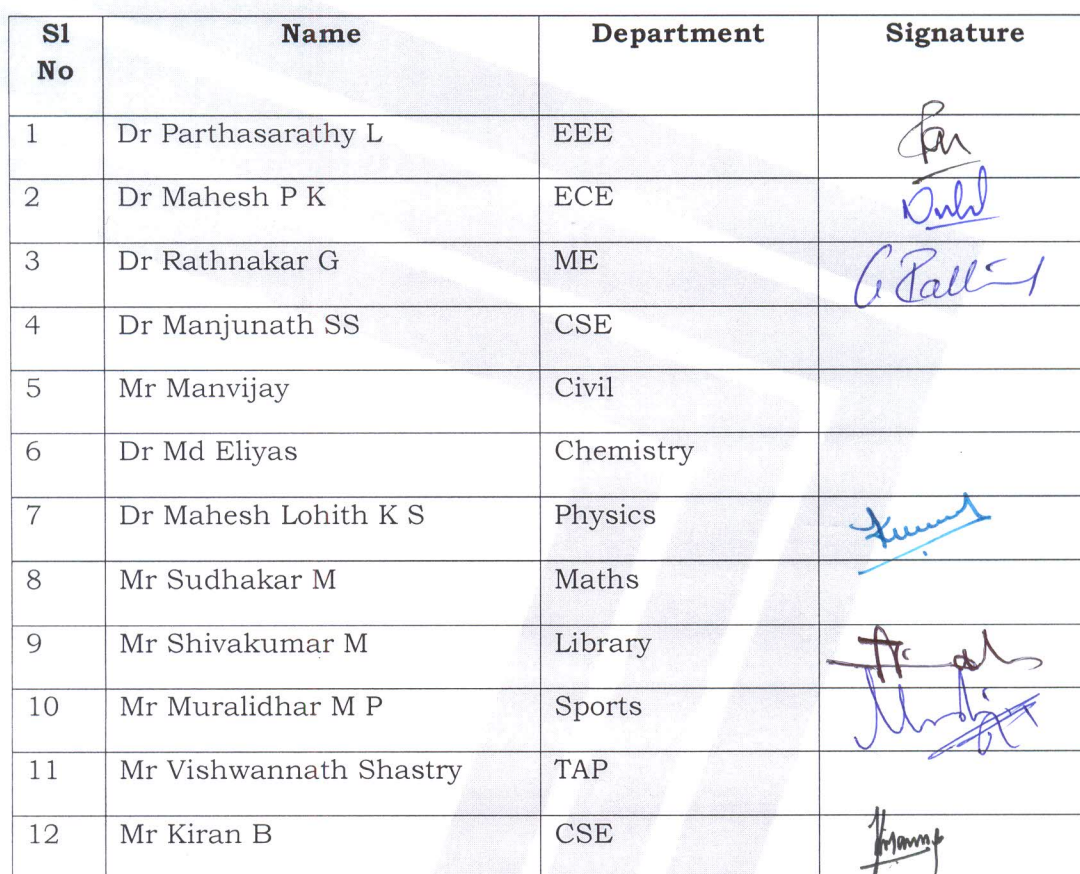 Sl No Name Department Signature
1 Dr Parthasarathy L EEE
2 Dr Mahesh P K ECE
3 Dr Rathnakar G ME
4 Dr Manjunath SS CSE
5 Mr Manvijay Civil
6 Dr Md Eliyas Chemistry
7 Dr Mahesh Lohith K S Physics
8 Mr Sudhakar M Maths
9 Mr Shivakumar M Library
10 Mr Muralidhar M P Sports
11 Mr Vishwannath Shastry TAP
12 Mr Kiran B CSE